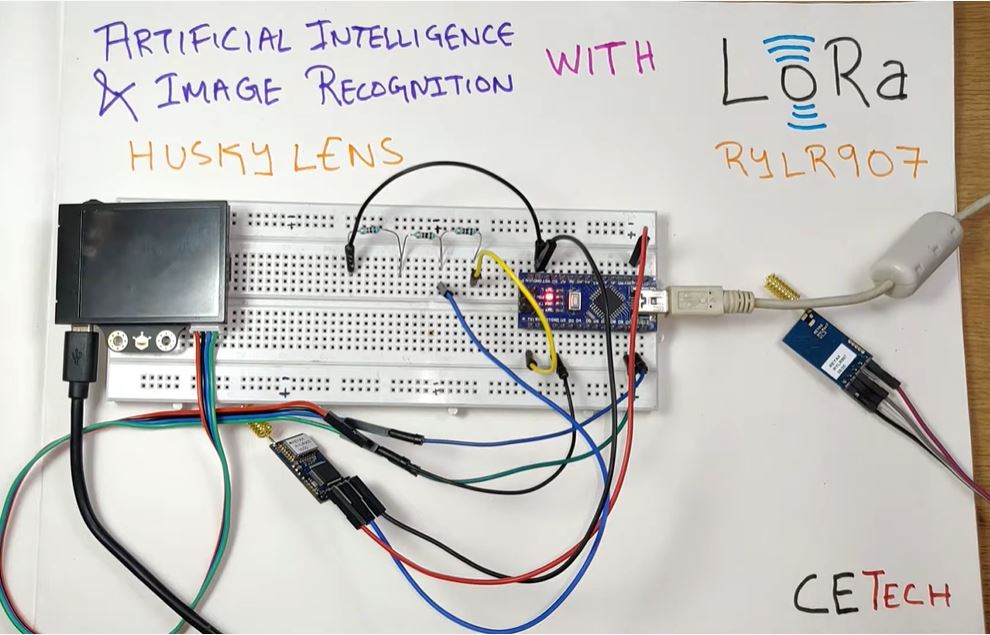 ARTIFICIAL INTELLIGENCE
& IMAGE RECOGNITION
WITH
LoRa
HUSKY LENS
RYLR907
CETECH